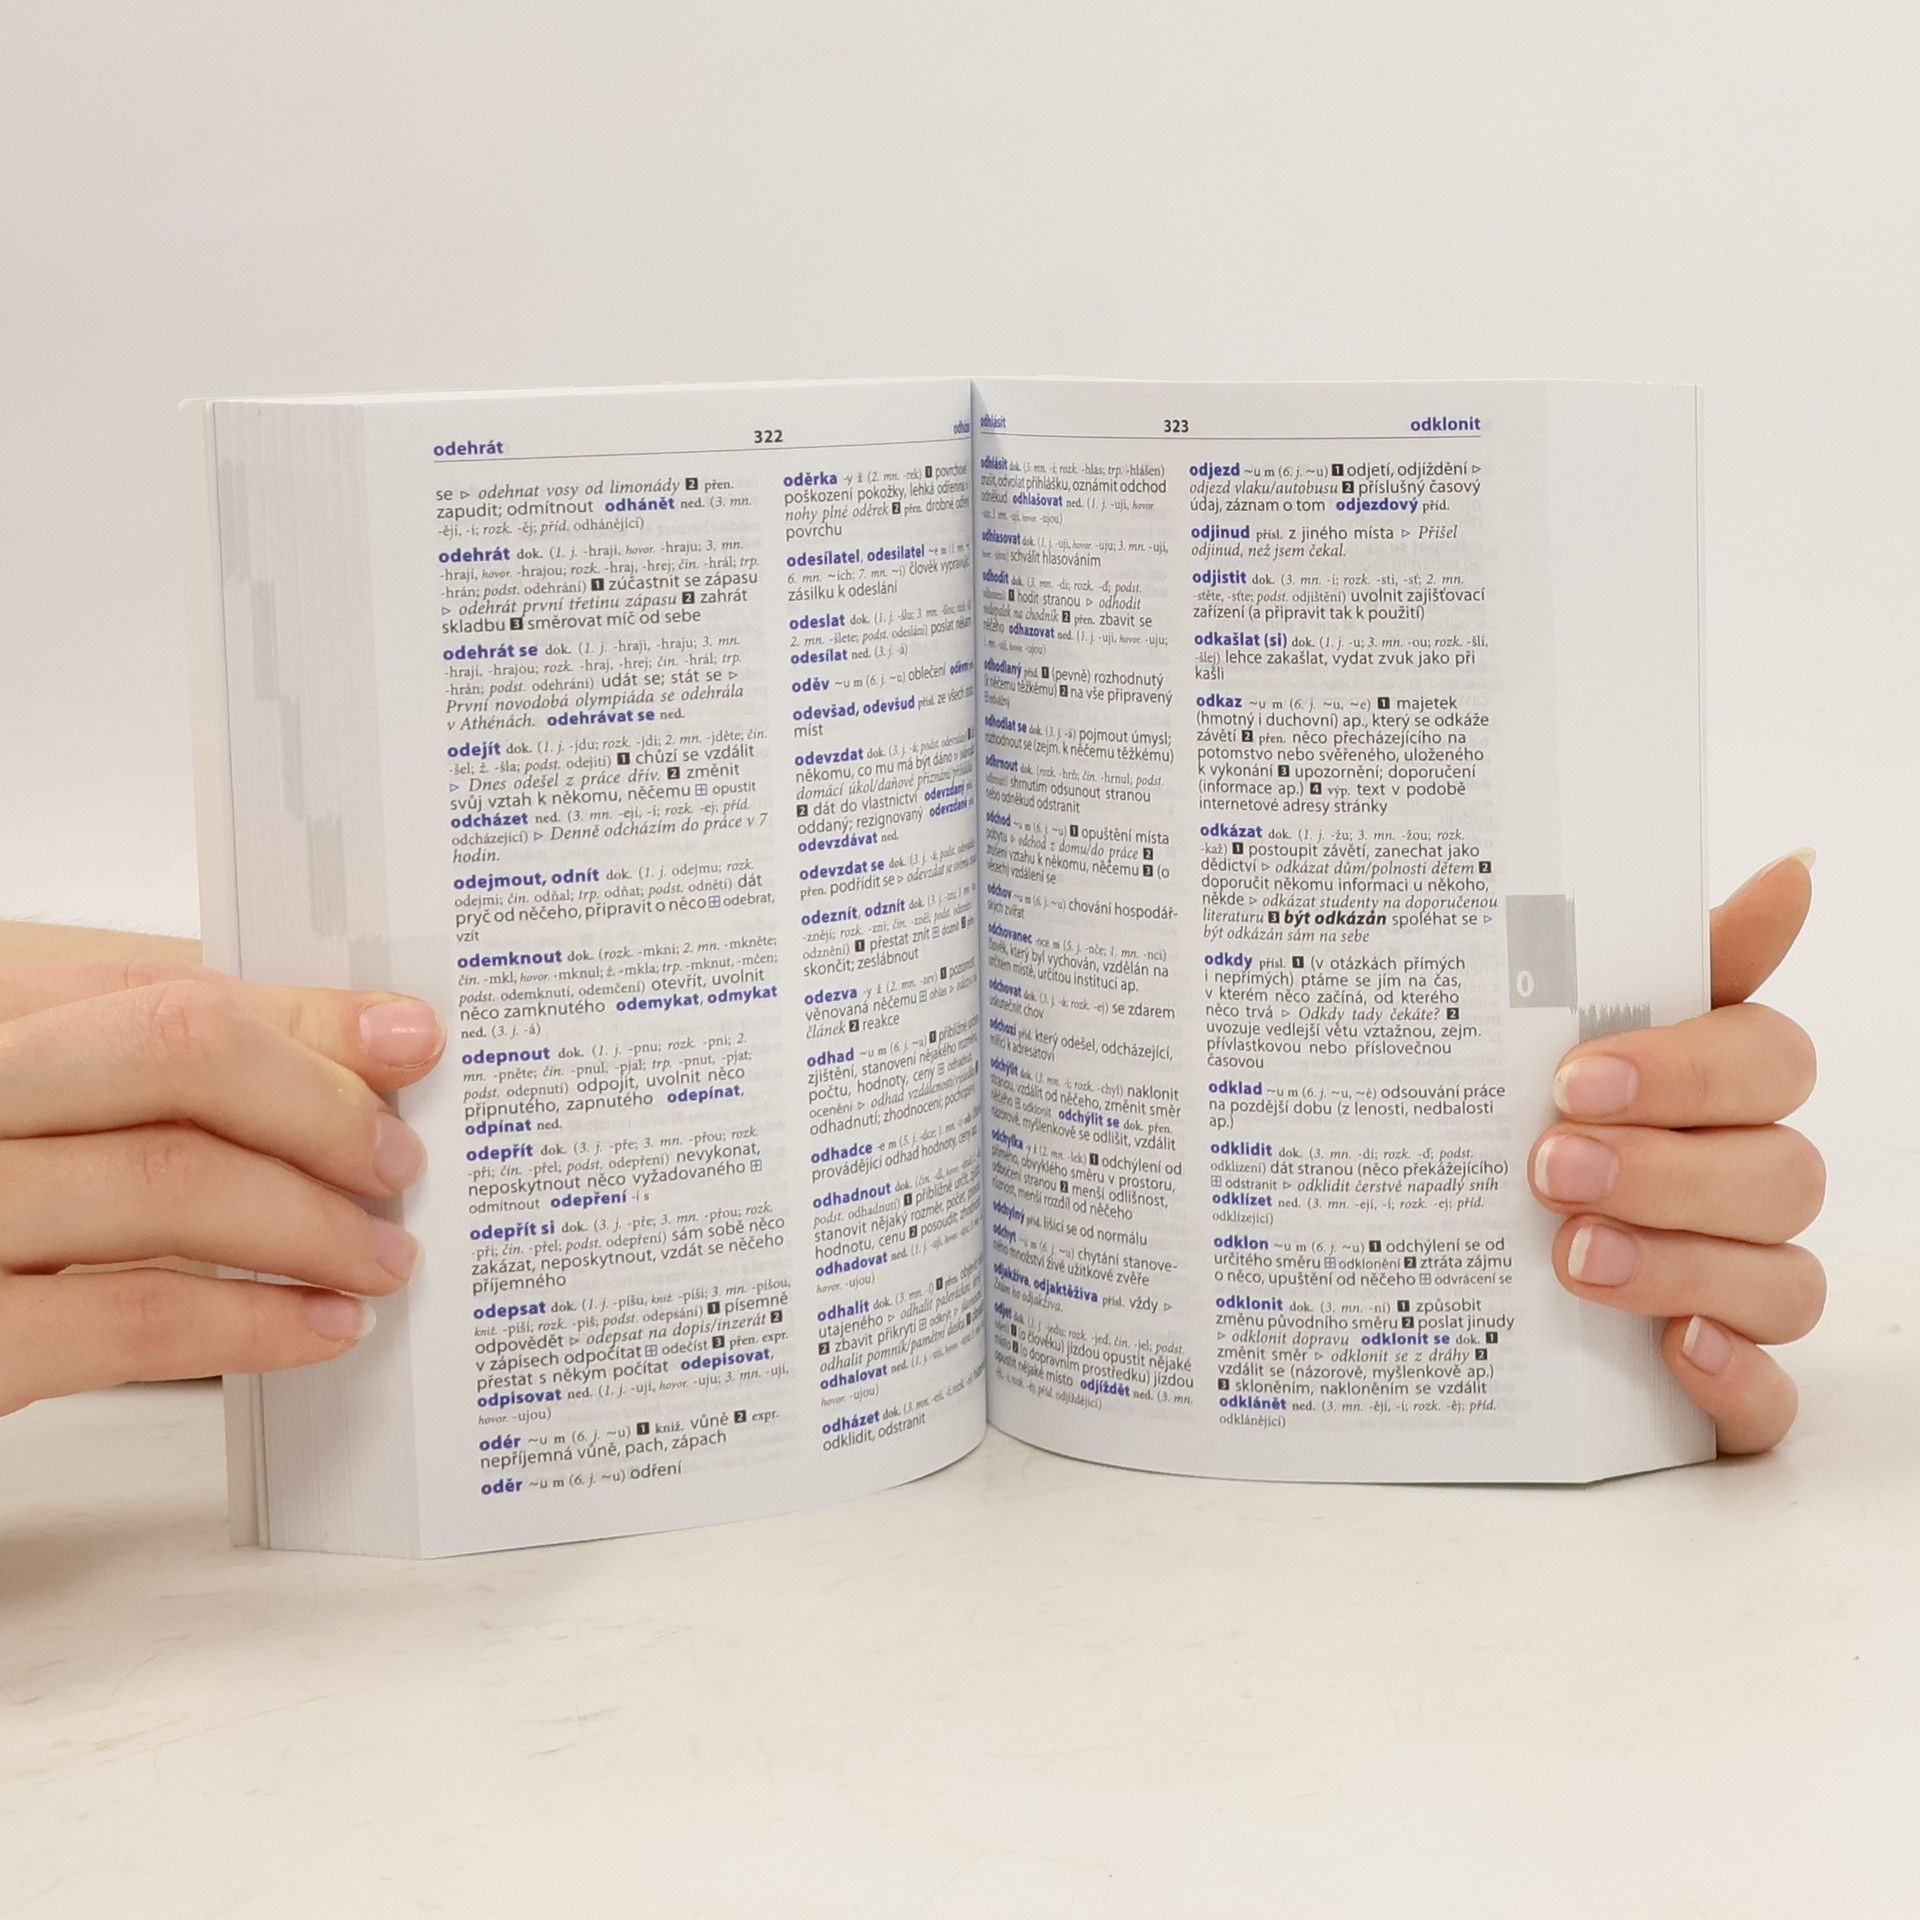 odehrát
322
se ▹ odehnat vosy od limonády 2 přen.
zapudit; odmítnout odhánět ned. (3. mn.
-ějí, -í; rozk. -ěj; příd. odhánějící)
odehrát dok. (1. j. -hraji, hovor. -hraju; 3. mn.
-hrají, hovor. -hrajou; rozk. -hraj, -hrej; čin. -hrál; trp.
-hrán; podst. odehrání) 1 zúčastnit se zápasu
▹ odehrát první třetinu zápasu 2 zahrát
skladbu 3 směrovat míč od sebe
odehrát se dok. (1. j. -hraji, -hraju; 3. mn.
-hrají, -hrajou; rozk. -hraj, -hrej; čin. -hrál; trp.
-hrán; podst. odehrání) udát se; stát se ▹
První novodobá olympiáda se odehrála
v Athénách. odehrávat se ned.
odejít dok. (1. j. -jdu; rozk. -jdi; 2. mn. -jděte; čin.
-šel; ž. -šla; podst. odejití) 1 chůzí se vzdálit
▹ Dnes odešel z práce dřív. 2 změnit
svůj vztah k někomu, něčemu ⊞ opustit
odcházet ned. (3. mn. -ejí, -í; rozk. -ej; příd.
odcházející) ▹ Denně odcházím do práce v 7
hodin.
odejmout, odnít dok. (1. j. odejmu; rozk.
odejmi; čin. odňal; trp. odňat; podst. odnětí) dát
pryč od něčeho, připravit o něco ⊞ odebrat,
vzít
odemknout dok. (rozk. -mkni; 2. mn. -mkněte;
čin. -mkl, hovor. -mknul; ž. -mkla; trp. -mknut, -mčen;
podst. odemknutí, odemčení) otevřít, uvolnit
něco zamknutého odemykat, odmykat
ned. (3. j. -á)
odepnout dok. (1. j. -pnu; rozk. -pni; 2.
mn. -pněte; čin. -pnul, -pjal; trp. -pnut, -pjat;
podst. odepnutí) odpojit, uvolnit něco
připnutého, zapnutého odepínat,
odpínat ned.
odepřít dok. (3. j. -pře; 3. mn. -přou; rozk.
-při; čin. -přel; podst. odepření) nevykonat,
neposkytnout něco vyžadovaného ⊞
odmítnout odepření -í s
odepřít si dok. (3. j. -pře; 3. mn. -přou; rozk.
-při; čin. -přel; podst. odepření) sám sobě něco
zakázat, neposkytnout, vzdát se něčeho
příjemného
odepsat dok. (1. j. -píšu, kniž. -píši; 3. mn. -píšou,
kniž. -píší; rozk. -piš; podst. odepsání) 1 písemně
odpovědět ▹ odepsat na dopis/inzerát 2
v zápisech odpočítat ⊞ odečíst 3 přen. expr.
přestat s někým počítat odepisovat,
odpisovat ned. (1. j. -uji, hovor. -uju; 3. mn. -ují,
hovor. -ujou)
odér ~u m (6. j. ~u) 1 kniž. vůně 2 expr.
nepříjemná vůně, pach, zápach
oděr ~u m (6. j. ~u) odření
oděrka -y ž (2. mn. -rek) 1 povrchové
poškození pokožky, lehká odřenina
nohy plné oděrek 2 přen. drobné
povrchu
odesílatel, odesilatel ~e m
6. mn. ~ích; 7. mn. ~i) člověk vypravující
zásilku k odeslání
odeslat dok.
2. mn. -šlete; podst. odeslání) poslat
odesílat ned. (3. j. -á)
oděv ~u m (6. j. ~u) oblečení
odevšad, odevšud přísl. ze všech
míst
odevzdat dok.
někomu, co mu má být dáno
domácí úkol/daňové přiznání
2 dát do vlastnictví odevzdaný
oddaný; rezignovaný
odevzdávat ned.
odevzdat se dok.
přen. podřídit se
odeznít, odznít dok.
odznění) 1 přestat znít
skončit; zeslábnout
odezva -y ž (2. mn. -zev) 1
věnovaná něčemu ⊞ ohlas
článek 2 reakce
odhad ~u m (6. j. ~u) 1 přibližné
zjištění, stanovení nějakého
počtu, hodnoty, ceny ⊞
ocenění ▹ odhad vzdálenosti
odhadnutí; zhodnocení;
odhadce -e m (5. j. -dce; 1. mn.
provádějící odhad hodnoty, ceny
odhadnout dok.
podst. odhadnutí) 1 přibližně určit,
stanovit nějaký rozměr, počet,
hodnotu, cenu 2 posoudit, zhodnotit
odhadovat ned.
hovor. -ujou)
odhalit dok. (3. mn. -í) 1
utajeného ▹ odhalit
2 zbavit přikrytí ⊞ odkrýt
odhalit pomník/pamětní desku
odhalovat ned.
hovor. -ujou)
odházet dok.
odklidit, odstranit
odhlásit
323
odklonit
odhlásit dok. (3. mn. -í; rozk. -hlas; trp. -hlášen)
zrušit, odvolat přihlášku, oznámit odchod
odněkud odhlašovat ned. (1. j. -uji, hovor.
-uju; 3. mn. -ují, hovor. -ujou)
odhlasovat dok. (1. j. -uji, hovor. -uju; 3. mn. -ují,
hovor. -ujou) schválit hlasováním
odhodit dok. (3. mn. -dí; rozk. -ď; podst.
1 hodit stranou ▹ odhodit
nedopalek na chodník 2 přen. zbavit se
něčeho odhazovat ned. (1. j. -uji, hovor. -uju;
3. mn. -ují, hovor. -ujou)
odhodlaný příd. 1 (pevně) rozhodnutý
(k něčemu těžkému) 2 na vše připravený
⊞ odvážný
odhodlat se dok. (3. j. -á) pojmout úmysl;
rozhodnout se (zejm. k něčemu těžkému)
odhrnout dok. (rozk. -hrň; čin. -hrnul; podst.
shrnutím odsunout stranou
nebo odněkud odstranit
odchod ~u m (6. j. ~u) 1 opuštění místa
pobytu ▹ odchod z domu/do práce 2
zrušení vztahu k někomu, něčemu 3 (o
věcech) vzdálení se
odchov ~u m (6. j. ~u) chování hospodář-
ských zvířat
odchovanec -nce m (5. j. -nče; 1. mn. -nci)
člověk, který byl vychován, vzdělán na
určitém místě, určitou institucí ap.
odchovat dok. (3. j. -á; rozk. -ej) se zdarem
uskutečnit chov
odchozí příd. který odešel, odcházející,
mířící k adresátovi
odchýlit dok. (3. mn. -í; rozk. -chyl) naklonit
stranou, vzdálit od něčeho, změnit směr
něčeho ⊞ odklonit odchýlit se dok. přen.
názorově, myšlenkově se odlišit, vzdálit
odchylka -y ž (2. mn. -lek) 1 odchýlení od
přímého, obvyklého směru v prostoru,
odbočení stranou 2 menší odlišnost,
různost, menší rozdíl od něčeho
odchylný příd. lišící se od normálu
odchyt ~u m (6. j. ~u) chytání stanove-
ného množství živé užitkové zvěře
odjakživa, odjaktěživa přísl. vždy ▹
Znám ho odjakživa.
odjet dok. (1. j. -jedu; rozk. -jeď; čin. -jel; podst.
1 (o člověku) jízdou opustit nějaké
místo 2 (o dopravním prostředku) jízdou
opustit nějaké místo odjíždět ned. (3. mn.
-ějí, -í; rozk. -ěj; příd. odjíždějící)
odjezd ~u m (6. j. ~u) 1 odjetí, odjíždění ▹
odjezd vlaku/autobusu 2 příslušný časový
údaj, záznam o tom odjezdový příd.
odjinud přísl. z jiného místa ▹ Přišel
odjinud, než jsem čekal.
odjistit dok. (3. mn. -í; rozk. -sti, -sť; 2. mn.
-stěte, -sťte; podst. odjištění) uvolnit zajišťovací
zařízení (a připravit tak k použití)
odkašlat (si) dok. (1. j. -u; 3. mn. -ou; rozk. -šli,
-šlej) lehce zakašlat, vydat zvuk jako při
kašli
odkaz ~u m (6. j. ~u, ~e) 1 majetek
(hmotný i duchovní) ap., který se odkáže
závětí 2 přen. něco přecházejícího na
potomstvo nebo svěřeného, uloženého
k vykonání 3 upozornění; doporučení
(informace ap.) 4 výp. text v podobě
internetové adresy stránky
odkázat dok. (1. j. -žu; 3. mn. -žou; rozk.
-kaž) 1 postoupit závětí, zanechat jako
dědictví ▹ odkázat dům/polnosti dětem 2
doporučit někomu informaci u někoho,
někde ▹ odkázat studenty na doporučenou
literaturu 3 být odkázán spoléhat se ▹
být odkázán sám na sebe
odkdy přísl. 1 (v otázkách přímých
i nepřímých) ptáme se jím na čas,
v kterém něco začíná, od kterého
něco trvá ▹ Odkdy tady čekáte? 2
uvozuje vedlejší větu vztažnou, zejm.
přívlastkovou nebo příslovečnou
časovou
odklad ~u m (6. j. ~u, ~ě) odsouvání práce
na pozdější dobu (z lenosti, nedbalosti
ap.)
odklidit dok. (3. mn. -dí; rozk. -ď; podst.
odklizení) dát stranou (něco překážejícího)
⊞ odstranit ▹ odklidit čerstvě napadlý sníh
odklízet ned. (3. mn. -ejí, -í; rozk. -ej; příd.
odklízející)
odklon ~u m (6. j. ~u) 1 odchýlení se od
určitého směru ⊞ odklonění 2 ztráta zájmu
o něco, upuštění od něčeho ⊞ odvrácení se
odklonit dok. (3. mn. -ní) 1 způsobit
změnu původního směru 2 poslat jinudy
▹ odklonit dopravu odklonit se dok. 1
změnit směr ▹ odklonit se z dráhy 2
vzdálit se (názorově, myšlenkově ap.)
3 skloněním, nakloněním se vzdálit
odklánět ned. (3. mn. -ějí, -í; rozk. -ěj; příd.
odklánějící)
O